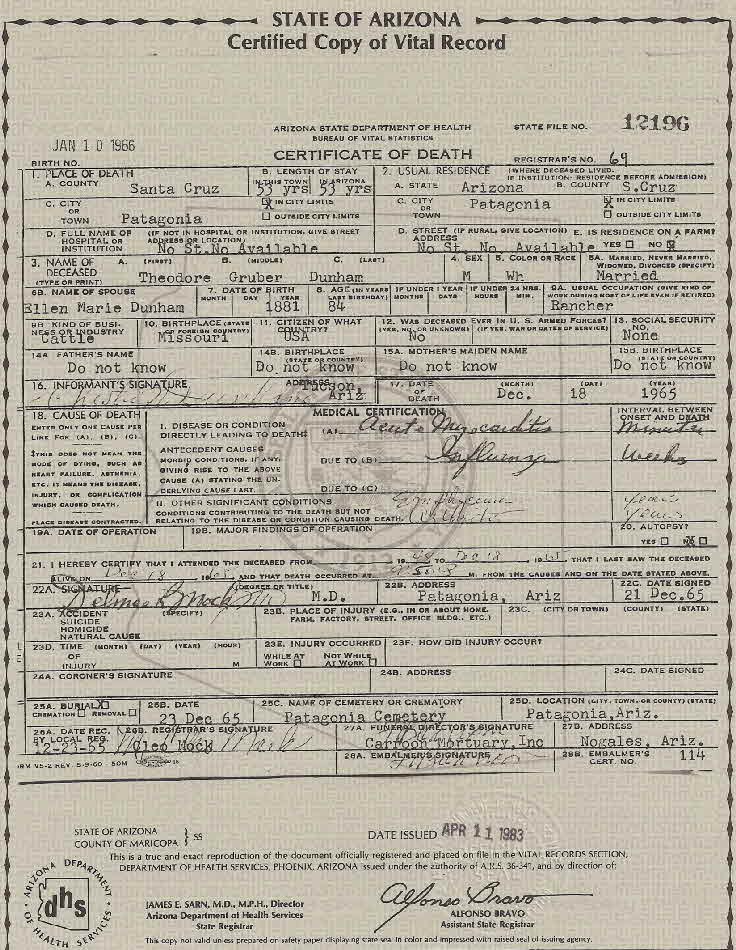 STATE OF ARIZONA
Certified Copy of Vital Record
ARIZONA STATE DEPARTMENT OF HEALTH
BUREAU OF VITAL STATISTICS
STATE FILE NO. 12196
JAN 10 1966
CERTIFICATE OF DEATH
BIRTH NO.
REGISTRAR'S NO. 69
1. PLACE OF DEATH
A. COUNTY Santa Cruz
B. LENGTH OF STAY
IN THIS TOWN IN ARIZONA
55 yrs 55 yrs
2. USUAL RESIDENCE (WHERE DECEASED LIVED. IF INSTITUTION: RESIDENCE BEFORE ADMISSION)
A. STATE Arizona B. COUNTY S.Cruz
C. CITY OR TOWN Patagonia
X IN CITY LIMITS
OUTSIDE CITY LIMITS
C. CITY OR TOWN Patagonia
X IN CITY LIMITS
OUTSIDE CITY LIMITS
D. FULL NAME OF HOSPITAL OR INSTITUTION (IF NOT IN HOSPITAL OR INSTITUTION, GIVE STREET ADDRESS OR LOCATION)
No St.No Available
D. STREET ADDRESS (IF RURAL, GIVE LOCATION)
No St. No. Available
E. IS RESIDENCE ON A FARM?
YES NO X
3. NAME OF DECEASED (TYPE OR PRINT)
A. (FIRST) B. (MIDDLE) C. (LAST)
Theodore Gruber Dunham
4. SEX M
5. COLOR OR RACE Wh
6A. MARRIED, NEVER MARRIED, WIDOWED, DIVORCED (SPECIFY)
Married
6B. NAME OF SPOUSE
Ellen Marie Dunham
7. DATE OF BIRTH
MONTH DAY YEAR
1881
8. AGE (IN YEARS LAST BIRTHDAY) 84
IF UNDER 1 YEAR MONTHS DAYS
IF UNDER 24 HRS. HOURS MIN.
9A. USUAL OCCUPATION (GIVE KIND OF WORK DURING MOST OF LIFE EVEN IF RETIRED)
Rancher
9B. KIND OF BUSINESS OR INDUSTRY
Cattle
10. BIRTHPLACE (STATE OR FOREIGN COUNTRY)
Missouri
11. CITIZEN OF WHAT COUNTRY?
USA
12. WAS DECEASED EVER IN U. S. ARMED FORCES?
(YES, NO, OR UNKNOWN) (IF YES, WAR OR DATES OF SERVICE)
No
13. SOCIAL SECURITY NO.
None
14A. FATHER'S NAME
Do not know
14B. BIRTHPLACE (STATE OR COUNTRY)
Do not know
15A. MOTHER'S MAIDEN NAME
Do not know
15B. BIRTHPLACE (STATE OR COUNTRY)
Do not know
16. INFORMANT'S SIGNATURE
ADDRESS
Tucson, Ariz
17. DATE OF DEATH
(MONTH) (DAY) (YEAR)
Dec. 18 1965
18. CAUSE OF DEATH
ENTER ONLY ONE CAUSE PER LINE FOR (A), (B), (C).
THIS DOES NOT MEAN THE MODE OF DYING, SUCH AS HEART FAILURE, ASTHENIA, ETC. IT MEANS THE DISEASE, INJURY, OR COMPLICATION WHICH CAUSED DEATH.
PLACE DISEASE CONTRACTED.
MEDICAL CERTIFICATION
INTERVAL BETWEEN ONSET AND DEATH
I. DISEASE OR CONDITION DIRECTLY LEADING TO DEATH:
(A) Acute Myocarditis Minutes
ANTECEDENT CAUSES
MORBID CONDITIONS, IF ANY, GIVING RISE TO THE ABOVE CAUSE (A) STATING THE UNDERLYING CAUSE LAST.
DUE TO (B) Influenza Weeks
DUE TO (C)
II. OTHER SIGNIFICANT CONDITIONS
CONDITIONS CONTRIBUTING TO THE DEATH BUT NOT RELATING TO THE DISEASE OR CONDITION CAUSING DEATH.
Emphysema years
years
19A. DATE OF OPERATION
19B. MAJOR FINDINGS OF OPERATION
20. AUTOPSY?
YES NO X
21. I HEREBY CERTIFY THAT I ATTENDED THE DECEASED FROM 19 TO Dec 18 1965 THAT I LAST SAW THE DECEASED
ALIVE ON Dec 18 1965 AND THAT DEATH OCCURRED AT M. FROM THE CAUSES AND ON THE DATE STATED ABOVE.
22A. SIGNATURE (DEGREE OR TITLE)
M.D.
22B. ADDRESS
Patagonia, Ariz
22C. DATE SIGNED
21 Dec.65
23A. ACCIDENT (SPECIFY)
SUICIDE
HOMICIDE
NATURAL CAUSE
23B. PLACE OF INJURY (E.G., IN OR ABOUT HOME, FARM, FACTORY, STREET, OFFICE BLDG., ETC.)
23C. (CITY OR TOWN) (COUNTY) (STATE)
23D. TIME OF INJURY (MONTH) (DAY) (YEAR) (HOUR) M
23E. INJURY OCCURRED
WHILE AT WORK NOT WHILE AT WORK
23F. HOW DID INJURY OCCUR?
24A. CORONER'S SIGNATURE
24B. ADDRESS
24C. DATE SIGNED
25A. BURIAL X
CREMATION REMOVAL
25B. DATE
23 Dec 65
25C. NAME OF CEMETERY OR CREMATORY
Patagonia Cemetery
25D. LOCATION (CITY, TOWN, OR COUNTY) (STATE)
Patagonia,Ariz.
26A. DATE REC. BY LOCAL REG.
12-23-65
26B. REGISTRAR'S SIGNATURE
Cleo Mock
27A. FUNERAL DIRECTOR'S SIGNATURE
Carroon Mortuary,Inc
27B. ADDRESS
Nogales, Ariz.
28A. EMBALMER'S SIGNATURE
28B. EMBALMER'S CERT. NO. 114
STATE OF ARIZONA
COUNTY OF MARICOPA } SS
DATE ISSUED APR 11 1983
This is a true and exact reproduction of the document officially registered and placed on file in the VITAL RECORDS SECTION,
DEPARTMENT OF HEALTH SERVICES, PHOENIX, ARIZONA issued under the authority of A.R.S. 36-341, and by direction of:
ARIZONA DEPARTMENT OF HEALTH SERVICES
dhs
JAMES E. SARN, M.D., M.P.H., Director
Arizona Department of Health Services
State Registrar
Alfonso Bravo
ALFONSO BRAVO
Assistant State Registrar
This copy not valid unless prepared on safety paper displaying state seal in color and impressed with raised seal of issuing agency.